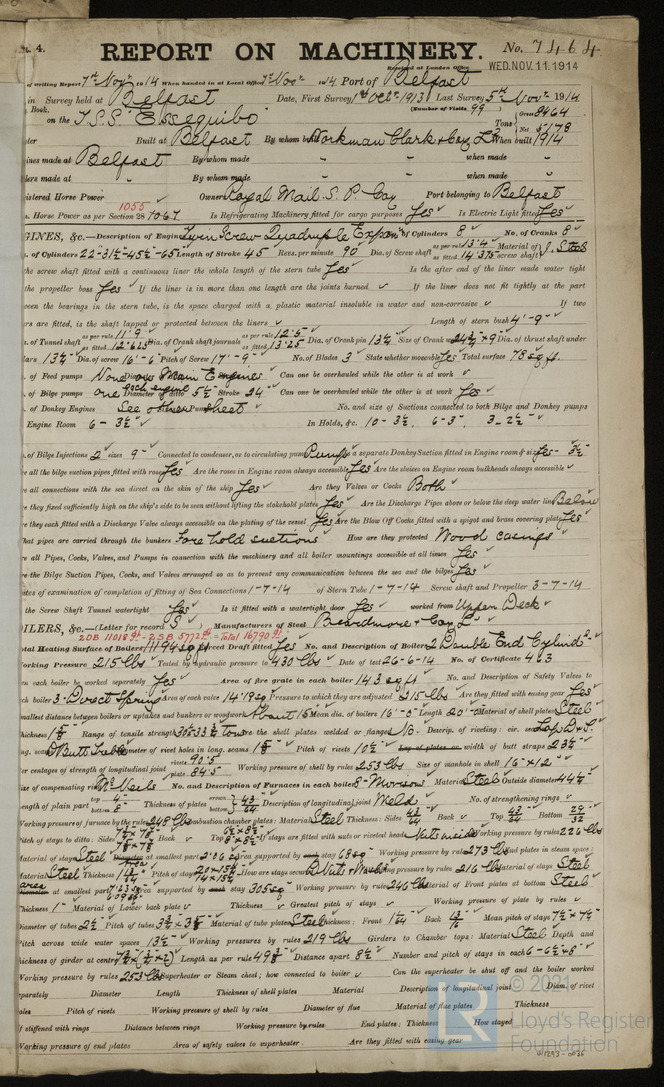 t. 4.
REPORT ON MACHINERY. No. 7464
Received at London Office WED. NOV. 11. 1914
of writing Report 7th Nov 1914 When handed in at Local Office 7 Nov 1914 Port of Belfast
in Survey held at Belfast Date, First Survey 1st Oct 1913 Last Survey 5th Nov 1914
Book. (Number of Visits 99)
on the T.S.S. "Essequibo" Tons Gross 8464 Net 5178
Built at Belfast By whom built Workman Clark & Coy Ld When built 1914
ines made at Belfast By whom made " when made "
lers made at " By whom made " when made "
istered Horse Power Owners Royal Mail S. P. Coy Port belonging to Belfast
1055
s. Horse Power as per Section 28 Is Refrigerating Machinery fitted for cargo purposes Yes Is Electric Light fitted Yes
GINES, &c.—Description of Engines Twin Screw Quadruple Expan No. of Cylinders 8 No. of Cranks 8
. of Cylinders 22"-31½"-45½"-65" Length of Stroke 45 Revs. per minute 90 Dia. of Screw shaft as per rule 13.4 as fitted 14.375 Material of screw shaft I. Steel
he screw shaft fitted with a continuous liner the whole length of the stern tube Yes Is the after end of the liner made water tight
the propeller boss Yes If the liner is in more than one length are the joints burned If the liner does not fit tightly at the part
ween the bearings in the stern tube, is the space charged with a plastic material insoluble in water and non-corrosive If two
rs are fitted, is the shaft lapped or protected between the liners Length of stern bush 4'-9"
. of Tunnel shaft as per rule 11.9 as fitted 12.625 Dia. of Crank shaft journals as per rule 12.5 as fitted 13.25 Dia. of Crank pin 13½ Size of Crank webs 24¾ × 9 Dia. of thrust shaft under
lars 13½ Dia. of screw 16'-6 Pitch of Screw 17'-9" No. of Blades 3 State whether moveable Yes Total surface 78 sq ft
. of Feed pumps None on Main Engines Can one be overhauled while the other is at work
. of Bilge pumps one each engine Diameter of ditto 5½ Stroke 24" Can one be overhauled while the other is at work Yes
. of Donkey Engines See other sheet No. and size of Suctions connected to both Bilge and Donkey pumps
Engine Room 6-3½" In Holds, &c. 10-3½, 6-3", 3-2½"
. of Bilge Injections 2 sizes 9" Connected to condenser, or to circulating pump Pump Is a separate Donkey Suction fitted in Engine room & size Yes-3½
e all the bilge suction pipes fitted with roses Yes Are the roses in Engine room always accessible Yes Are the sluices on Engine room bulkheads always accessible
e all connections with the sea direct on the skin of the ship Yes Are they Valves or Cocks Both
e they fixed sufficiently high on the ship's side to be seen without lifting the stokehold plates Yes Are the Discharge Pipes above or below the deep water line Below
e they each fitted with a Discharge Valve always accessible on the plating of the vessel Yes Are the Blow Off Cocks fitted with a spigot and brass covering plate Yes
hat pipes are carried through the bunkers Fore hold suctions How are they protected Wood casings
e all Pipes, Cocks, Valves, and Pumps in connection with the machinery and all boiler mountings accessible at all times Yes
e the Bilge Suction Pipes, Cocks, and Valves arranged so as to prevent any communication between the sea and the bilges Yes
ates of examination of completion of fitting of Sea Connections 1-7-14 of Stern Tube 1-7-14 Screw shaft and Propeller 3-7-14
the Screw Shaft Tunnel watertight Yes Is it fitted with a watertight door Yes worked from Upper Deck
OILERS, &c.—(Letter for record S) Manufacturers of Steel Beardmore & Coy Ld
2DB 11018 - 2SB 5772 = Total 16790
tal Heating Surface of Boilers 11194 sq ft Forced Draft fitted Yes No. and Description of Boilers 2 Double End Cylindl
Working Pressure 215 lbs Tested by hydraulic pressure to 430 lbs Date of test 26-6-14 No. of Certificate 463
n each boiler be worked separately Yes Area of fire grate in each boiler 143 sq ft No. and Description of Safety Valves to
ch boiler 3-Direct Spring Area of each valve 14.19 sq Pressure to which they are adjusted 215 lbs Are they fitted with easing gear Yes
mallest distance between boilers or uptakes and bunkers or woodwork About 15" Mean dia. of boilers 16'-0" Length 20'-0" Material of shell plates Steel
hickness Range of tensile strength Are the shell plates welded or flanged No. Descrip. of riveting: cir. seams Lap D.R.
ng. seams D Butt Treble Diameter of rivet holes in long. seams Pitch of rivets 10½ Lap of plates or width of butt straps 23½
er centages of strength of longitudinal joint rivets 90.5 plate 84.5 Working pressure of shell by rules 253 lbs Size of manhole in shell 16" × 12"
ize of compensating ring McNeils No. and Description of Furnaces in each boiler 8-Morison Material Steel Outside diameter 44¼"
ength of plain part top bottom Thickness of plates crown bottom Description of longitudinal joint Weld No. of strengthening rings
Working pressure of furnace by the rules 248 lbs Combustion chamber plates: Material Steel Thickness: Sides Back Top Bottom
itch of stays to ditto: Sides Back Top If stays are fitted with nuts or riveted heads Nuts inside Working pressure by rules 226 lbs
aterial of stays Steel Diameter at smallest part 2.06 Area supported by each stay 68 sq Working pressure by rules 273 lbs End plates in steam space:
Material Steel Thickness Pitch of stays How are stays secured D Nuts & Washers Working pressure by rules 216 lbs Material of stays Steel
area at smallest part Area supported by each stay 305 sq Working pressure by rules 246 lbs Material of Front plates at bottom Steel
hickness 1" Material of Lower back plate Thickness Greatest pitch of stays Working pressure of plate by rules
Diameter of tubes 2½ Pitch of tubes Material of tube plates Steel Thickness: Front Back Mean pitch of stays 7½ × 7½
itch across wide water spaces 13½" Working pressures by rules 219 lbs Girders to Chamber tops: Material Steel Depth and
hickness of girder at centre Length as per rule Distance apart 8½ Number and pitch of stays in each
orking pressure by rules 253 lbs Superheater or Steam chest; how connected to boiler Can the superheater be shut off and the boiler worked
eparately Diameter Length Thickness of shell plates Material Description of longitudinal joint Diam. of rivet
oles Pitch of rivets Working pressure of shell by rules Diameter of flue Material of flue plates Thickness
f stiffened with rings Distance between rings Working pressure by rules End plates: Thickness How stayed
Working pressure of end plates Area of safety valves to superheater Are they fitted with easing gear
© 2021
Lloyd's Register
Foundation
W1293-0026